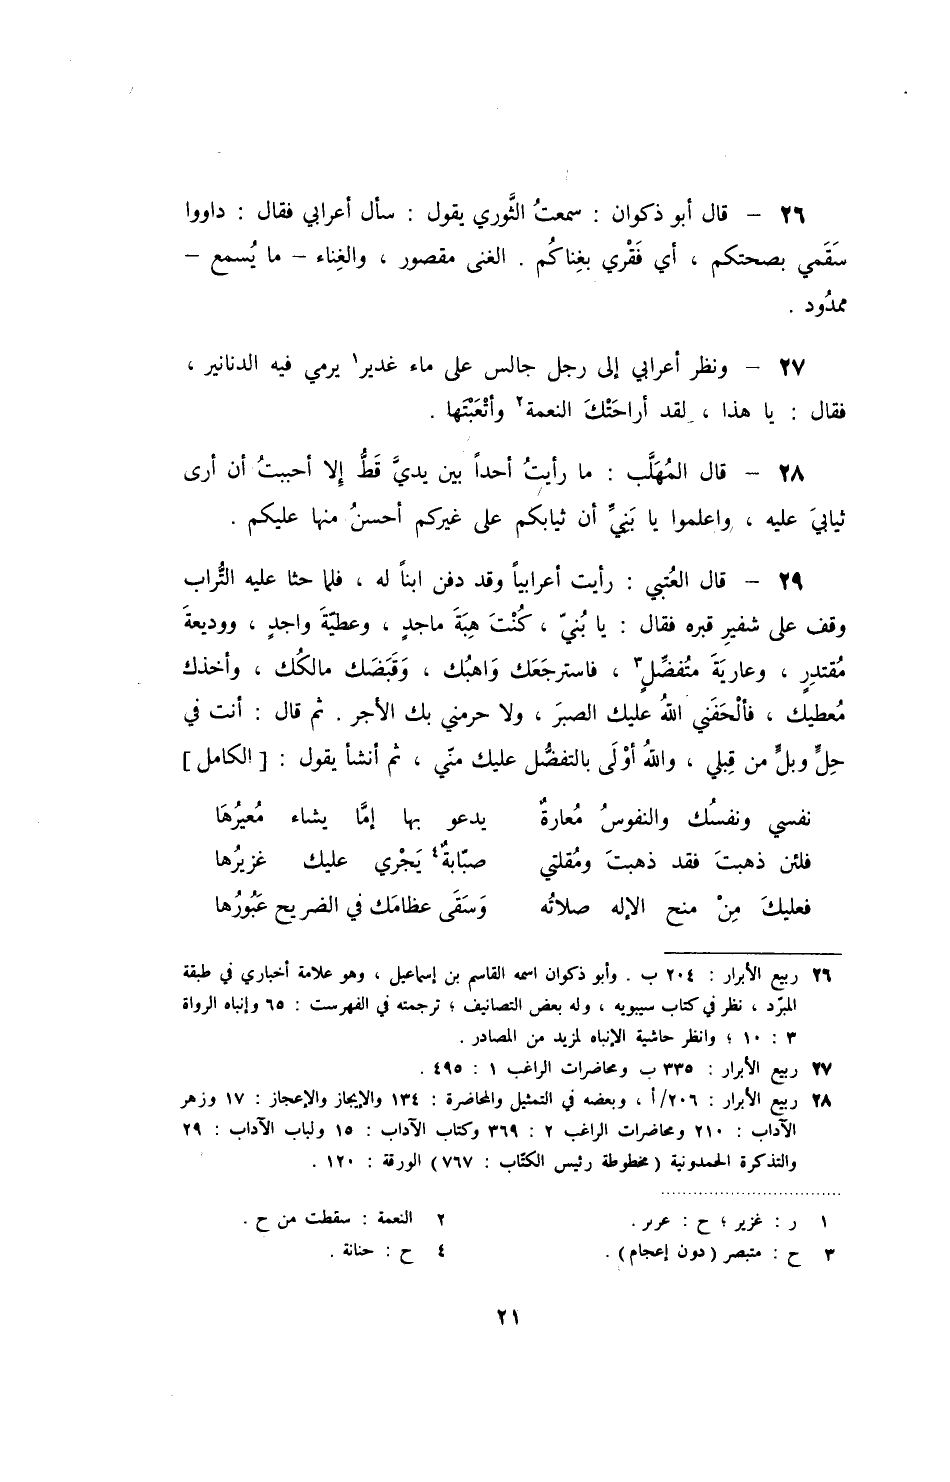 ٢٦ – قال أبو ذكوان : سمعتُ الثَّوري يقول : سأل أعرابي فقال : داووا
سَقَمي بصحتكم ، أي فَقْري بغِناكُم . الغنى مقصور ، والغِناء – ما يُسمع –
ممدُود .
٢٧ – ونظر أعرابي إلى رجل جالس على ماء غدير١ يرمي فيه الدنانير ،
فقال : يا هذا ، لقد أراحَتْكَ النعمة٢ وأتْعَبْتَها .
٢٨ – قال المُهَلَّب : ما رأيتُ أحداً بين يديَّ قَطُّ إلا أحببتُ أن أرى
ثيابيَ عليه ، واعلموا يا بَنِيِّ أن ثيابكم على غيركم أحسنُ منها عليكم .
٢٩ – قال العُتبي : رأيت أعرابياً وقد دفن ابناً له ، فلما حثا عليه التُّراب
وقف على شفيرِ قبره فقال : يا بُنيّ ، كُنْتَ هِبَةَ ماجدٍ ، وعطيّةَ واجدٍ ، ووديعةَ
مُقتدرٍ ، وعاريَةَ مُتفضِّلٍ٣ ، فاسترجَعَك وَاهبُك ، وَقَبَضَك مالكُك ، وأخذك
مُعطيك ، فألْحَفَني اللهُ عليك الصبرَ ، ولا حرمني بك الأجر . ثم قال : أنت في
حِلٍّ وبلٍّ من قِبلي ، واللهُ أوْلَى بالتفضُّل عليك منّي ، ثم أنشأ يقول : [ الكامل ]
نفسي ونفسُك والنفوسُ مُعارةٌ يدعو بها إمَّا يشاء مُعيرُهَا
فلئن ذهبتَ فقد ذهبتَ ومُقلتي صبّابةٌ٤ يَجْري عليك غزيرُها
فعليكَ مِنْ منح الإله صلاتُه وَسَقَى عظامَك في الضريح عَبُورُها
٢٦ ربيع الأبرار : ٢٠٤ ب . وأبو ذكوان اسمه القاسم بن إسماعيل ، وهو علامة أخباري في طبقة
المبرّد ، نظر في كتاب سيبويه ، وله بعض التصانيف ؛ ترجمته في الفهرست : ٦٥ وإنباه الرواة
٣ : ١٠ ؛ وانظر حاشية الإنباه لمزيد من المصادر .
٢٧ ربيع الأبرار : ٣٣٥ ب ومحاضرات الراغب ١ : ٤٩٥ .
٢٨ ربيع الأبرار : ٢٠٦/أ ، وبعضه في التمثيل والمحاضرة : ١٣٤ والإيجاز والإعجاز : ١٧ وزهر
الآداب : ٢١٠ ومحاضرات الراغب ٢ : ٣٦٩ وكتاب الآداب : ١٥ ولباب الآداب : ٢٩
والتذكرة الحمدونية ( مخطوطة رئيس الكتّاب : ٧٦٧ ) الورقة : ١٢٠ .
١ ر : غزير ؛ ح : عربر . ٢ النعمة : سقطت من ح .
٣ ح : متبصر ( دون إعجام ) . ٤ ح : حنانة .
٢١